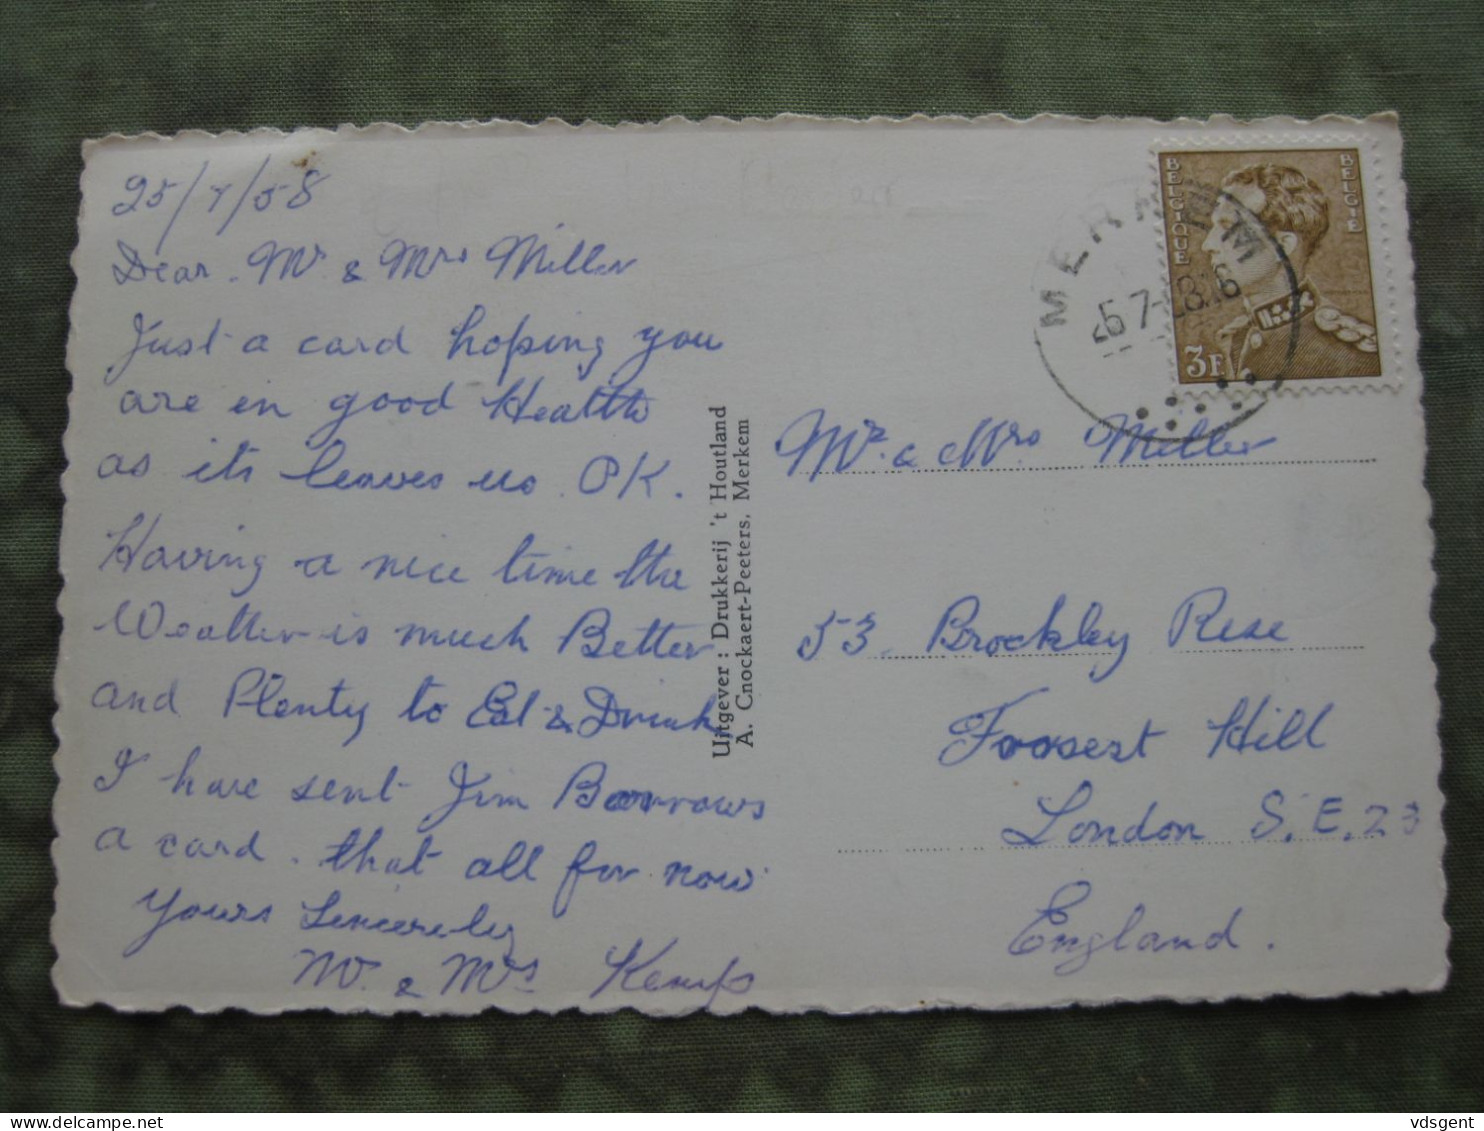 25/7/58
Dear Mr & Mrs Miller
Just a card hoping you
are in good Health
as its leaves us O.K.
Having a nice time the
Weather is much Better
and Plenty to Eat & Drink
I have sent Jim Barrows
a card. that all for now
Yours Sincerely
Mr. & Mrs Kemp
Uitgever : Drukkerij 't Houtland
A. Cnockaert-Peeters, Merkem
BELGIQUE
BELGIE
3F
MERKEM
Mr. & Mrs Miller
53 Brockley Rise
Foosest Hill
London S.E.23
England.
vdsgent